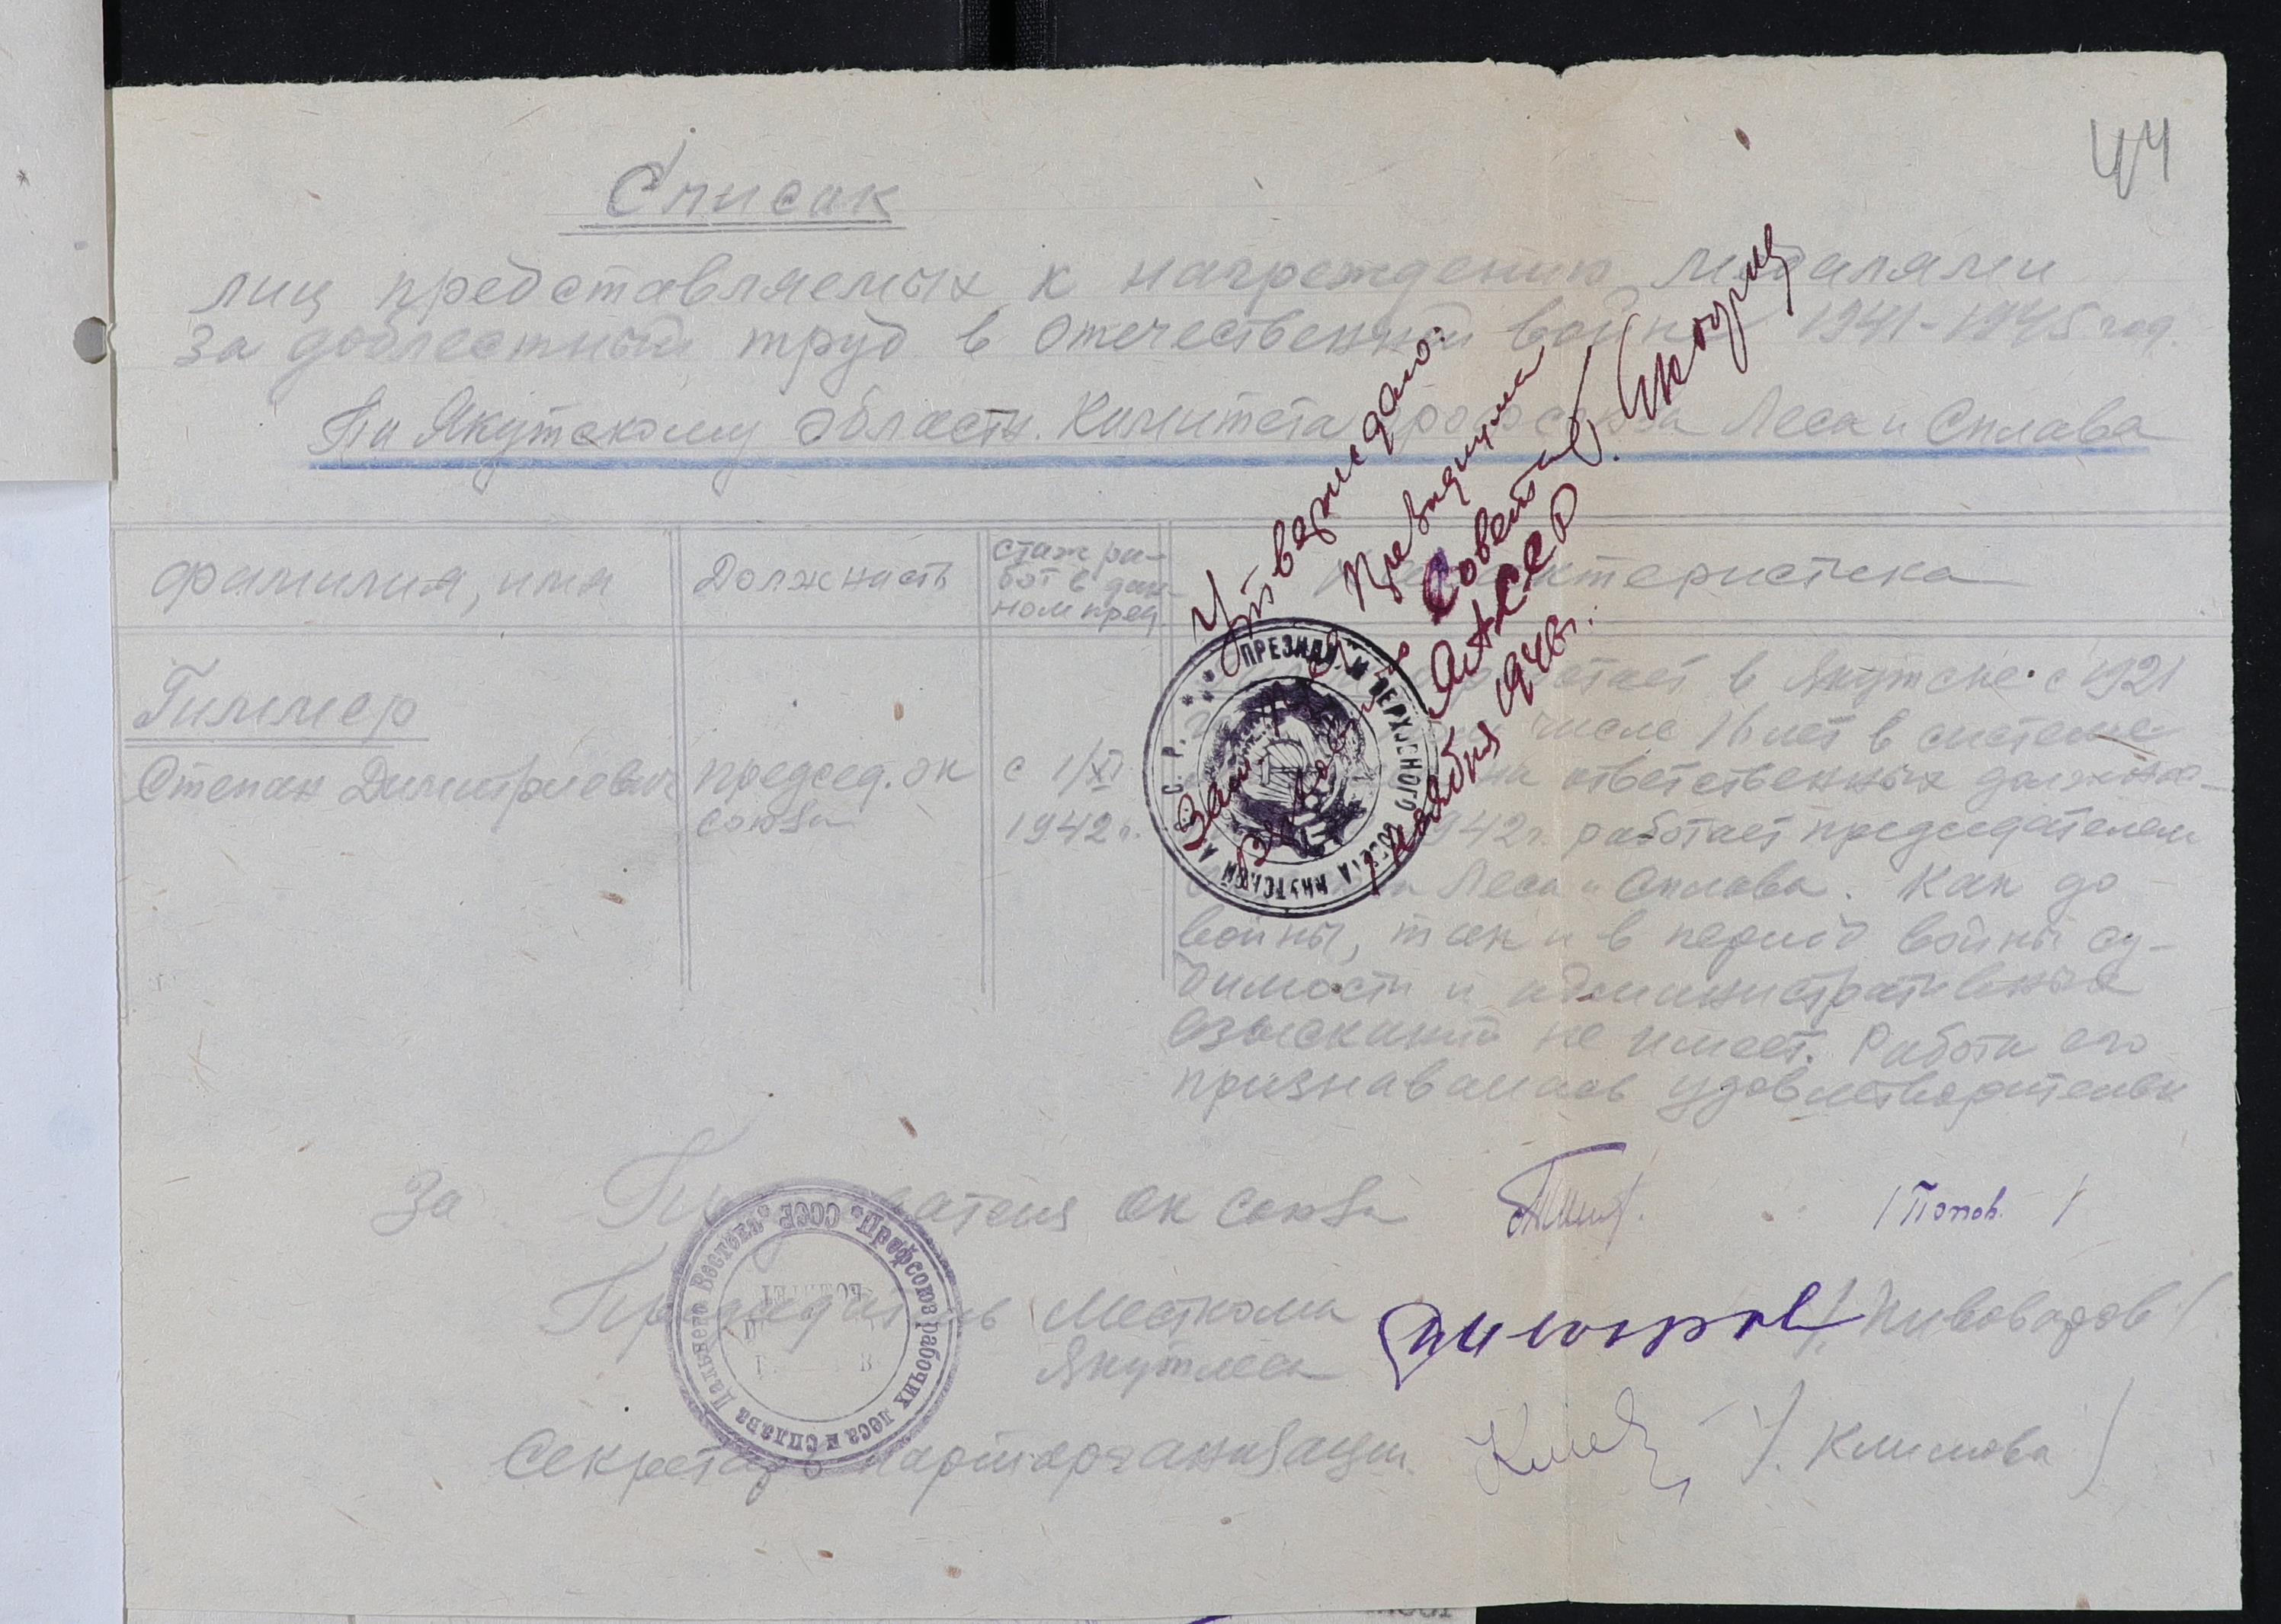 44
Список
лиц представляемых к награждению медалями
за доблестный труд в Отечественной войне 1941-1945 год.
По Якутскому Област. Комитета профсоюза Леса и Сплава
Фамилия, имя
Должность
стаж ра-
бот в дан-
ном пред.
Характеристика
Гиллер
Степан Димитриевич
председ. ок
союза
с 1/XI
1942 г.
работает в Якутске с 1921
числе 16 лет в системе
на ответственных должно-
1942 г. работает председателем
Леса и Сплава. Как до
войны, так и в период войны су-
димости и административных
взысканий не имеет. Работа его
признавалась удовлетворительн
Утверждаю:
Президиума
Совета
ЯАССР
ноября 1946 г.
ПРЕЗИДИУМ ВЕРХОВНОГО СОВЕТА ЯКУТСКОЙ А.С.С.Р.
За Председателя ок союза /Попов/
Председатель Месткома /Пивоваров/
Якутлеса
Секретарь парторганизации /Климова/
Профсоюз рабочих леса и сплава Дальнего Востока СССР